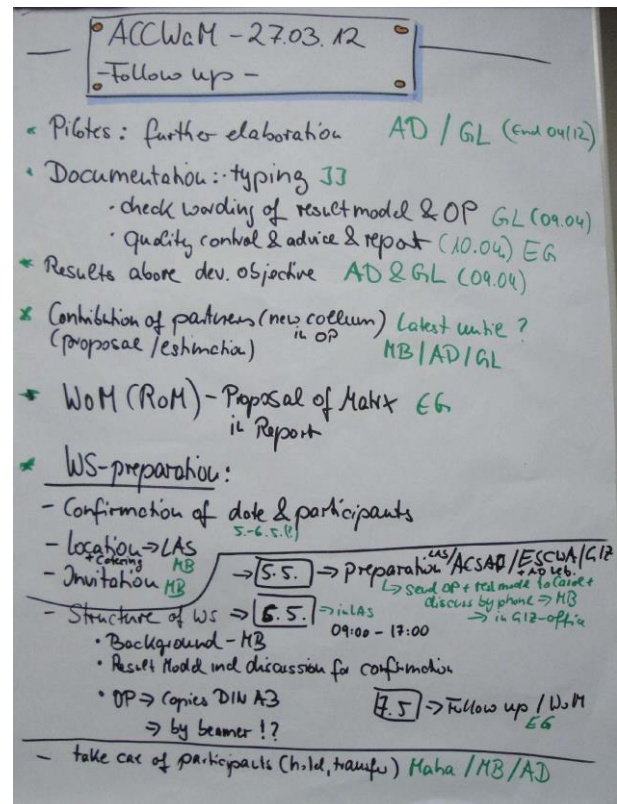 ACCWaM - 27.03.12
- Follow up -
* Pilotes: further elaboration AD / GL (End 04/12)
* Documentation: typing JJ
· check wording of result model & OP GL (09.04)
· quality control & advice & report (10.04) EG
* Results above dev. objective AD & GL (09.04)
* Contribution of partners (new collum) Latest untie ?
in OP
(proposal / estimation) MB / AD / GL
* WoM (RoM) - Proposal of Matrix EG
in Report
* WS-preparation:
- Confirmation of date & participants
5.-6.5.(!)
- Location → LAS
+ Catering MB
- Invitation MB
→ 5.5. → Preparation LAS/ACSAD/ESCWA/GIZ
+ AD Leb.
↳ send OP + res. model to Carol +
discuss by phone → MB
→ in GIZ-office
- Structure of WS → 6.5. → in LAS
09:00 - 17:00
· Background - MB
· Result Model incl discussion for confirmation
· OP → Copies DIN A3
→ by beamer !?
7.5 → Follow up / WoM
EG
- take care of participants (hotel, transfer) Maha / MB / AD